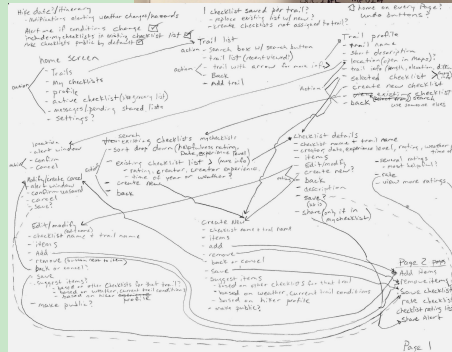 Hike date/itinerary
- notifications alerting weather changes/hazards
Alert me if conditions change
include my checklists in existing checklist list
Make checklists public by default
1 checklist saved per trail?
- replace existing list w/ new?
- create checklists not assigned to trail?
home on Every Page?
undo buttons?
home screen
- Trails
- My checklists
- profile
- active checklist
- messages/pending shared lists
- settings?
Trail list
action - search box w/ search button
- trail list
action - trail with arrow for more info
- Back
- Add trail
Trail profile
- trail name
- short description
- location (open in Maps)
- trail info
- selected checklist
- create new checklist
- existing checklist
- back
search
Action
alert window
- confirm
- cancel
existing checklists
mychecklists
- sort drop down
- existing checklist list (more info)
- rating, creator, creator experience,
- time of year or weather?
- create new
- back
Checklist details
- checklist name + trail name
- items
- Edit/modify
- create new?
- Back
- description
- save?
- share (only if in
mychecklist)
- overall rating
- most helpful?
- rate
- view more ratings
- alert window
- confirm
- cancel
- save?
Edit/modify
- checklist name + trail name
- items
- add
- remove
- back or cancel?
- save
- suggest items?
- based on other checklists for that trail?
- based on weather, current trail conditions
- based on hiker profile
- make public?
Create New
- checklist name + trail name
- items
- add
- remove
- back or cancel
- save
- suggest items?
- based on other checklists for that trail
- based on weather, current trail conditions
- based on hiker profile
- make public?
Page 2
Add items
remove items
Save checklist
rate checklist
checklist rating list
Share Alert
Page 1